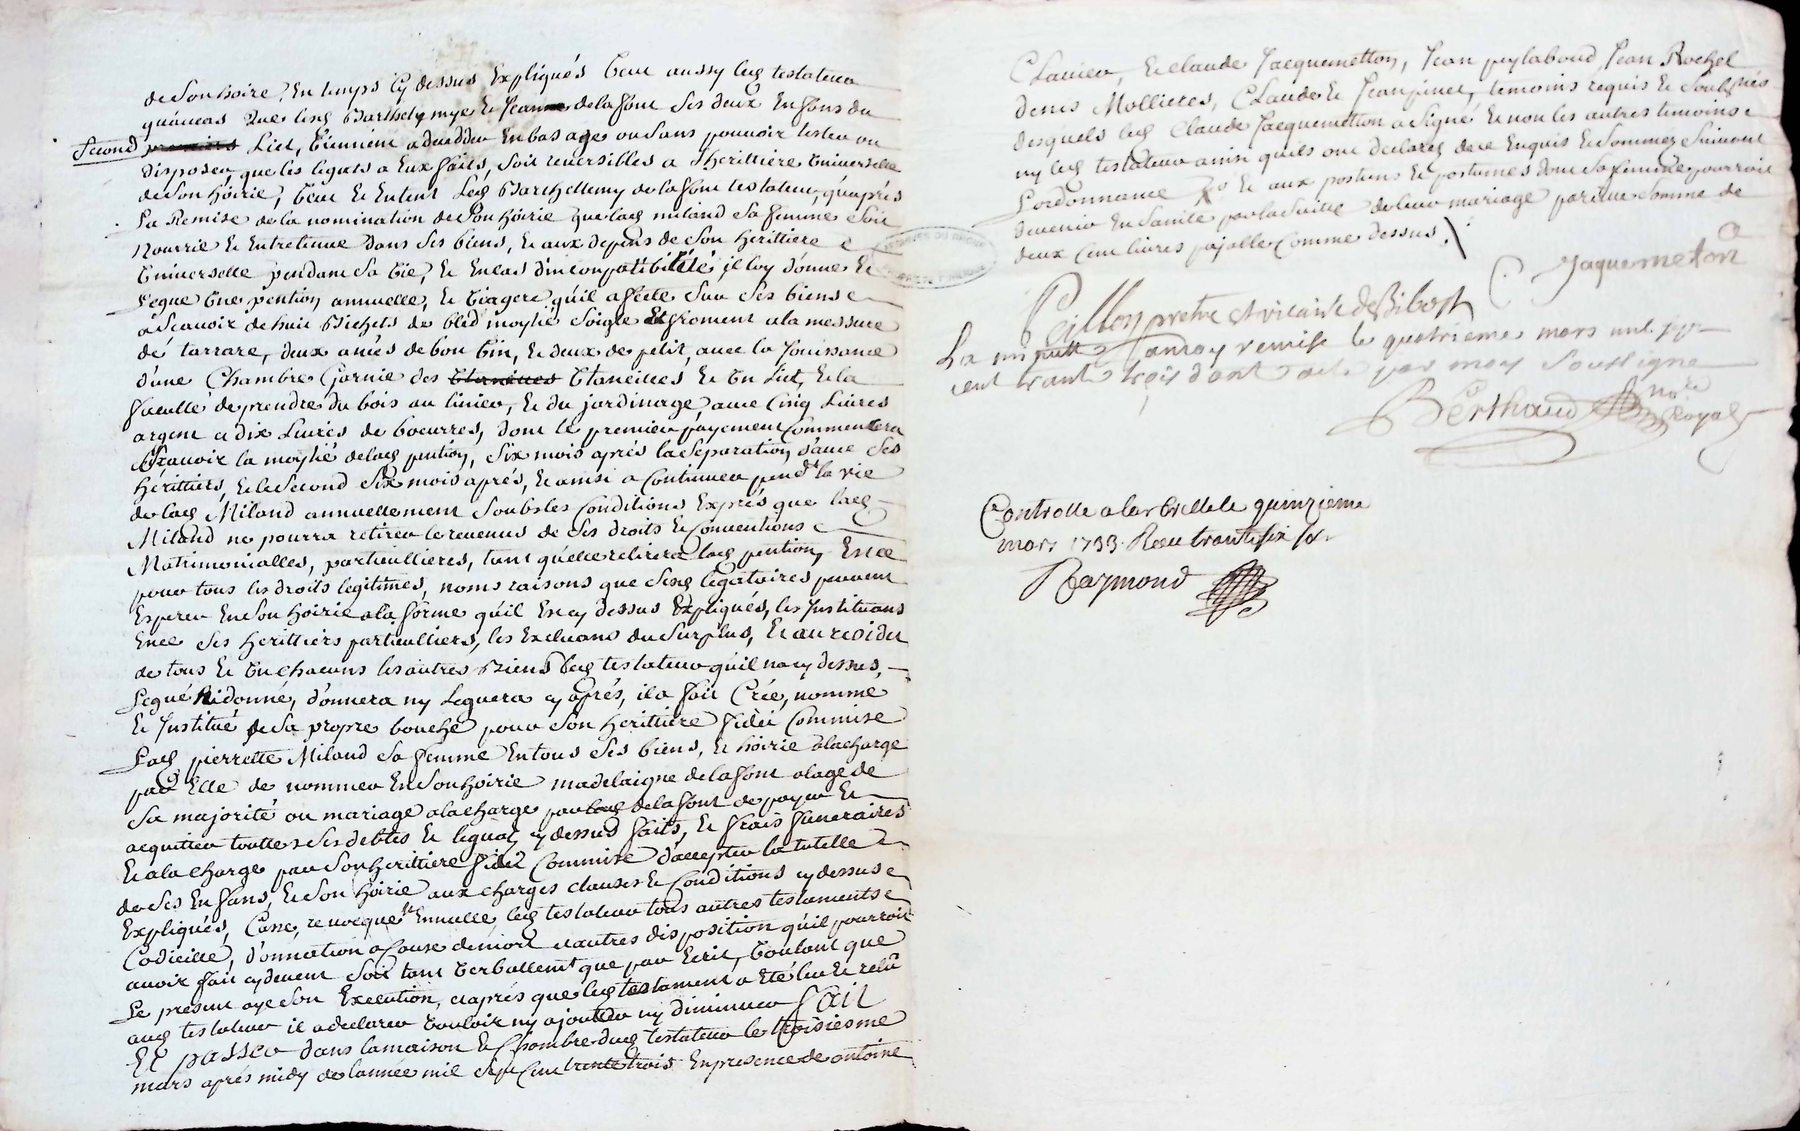 de son hoire, En temps Cy dessus Expliqués Veut aussy led testateur
qu'au cas que lesd Barthelemye Et Jeanne delafont ses deux Enfans du
second Lict, viennent a decedder En bas age ou sans pouvoir tester ou
disposer, que les legats a Eux faits, soit reversibles a L'herittiere Universelle
de son hóirie, Veut Et Entent Led Barthellemy delafont testateur, qu'aprés
La Remise de la nomination de son hóirie que lad miland sa femme soit
Nourrie Et Entretenue dans ses biens, Et aux depens de son herittiere
Universelle pendant sa Vie, Et En cas d'incompatibilité, il luy donne Et
Legue Une pention annuelle, Et Viagere qu'il affecte sur ses biens
a scavoir de huit Bichets de bled moytié soigle Et froment a la messure
de tarrare, deux anées de bon Vin, Et deux de petit, avec la Jouissance
d'une Chambre Garnie des Utancilles Et Un Lict, Et la
faculté de prendre du bois au linier, Et du jardinage, avec Cinq Livres
argent et dix Livres de boeurres, dont le premier payement Commencera
Scavoir la moytié de lad pention, six mois aprés la separation d'avec ses
herittiers, Et le second six mois aprés, Et ainsi a Continuer pendt la vie
de lad Miland annuellement soubs les Conditions Exprés que lad
Miland ne pourra retirer le revenus de ses droits Et Conventions
Matrimonialles, particullieres, tant qu'elle retirera lad pention, Et ce
pour tous les droits legitimes, noms raisons que sesd légataires peuvent
Esperer En son hoirie a la forme qu'il Est cy dessus Expliqués, les Instituans
En ce ses herittiers particulliers, les Excluans du surplus, Et au residu
de tous Et Un chacuns les autres Biens dud testateur qu'il n'a cy dessus,
Legué Ni donné, donnera ny Leguera cy aprés, il a fait Crée, nommé
Et Institué de sa propre bouche pour son herittiere fidei Commise
Lad pierrette Miland sa femme En tous ses biens, Et hóirie a la charge
par Elle de nommer En son hoirie madelaigne delafont a lage de
sa majorité ou mariage a la charge par lad delafont de payer Et
acquitter touttes ses debtes Et legats cy dessus faits, Et frais funeraires
Et a la charge par son herittiere fidei Commise d'accepter la tutelle
de ses Enfans, Et son hoirie aux charges clauses Et Conditions cy dessus
Expliqués, Casse, revocque Et Annulle led testateur tous autres testaments
Codicille, donnation a Cause de mort et autres disposition qu'il pourroit
avoir fait cy devent soit tant Verballemt que par Ecrit, Voulant que
Le present aye son Execution, et aprés que led testament a Eté leu Et relû
aud testateur il a declarer Vouloir ny ajoutter ny diminuer Fait
Et passer dans la maison Et Chambre dud testateur le troisiesme
mars aprés midy de l'année mil sept Cent trente trois En presence de antoine
Clavier, Et claude Jacquemetton, Jean puylabout, Jean Rochel
denis Mollieres, Claude Et Jean pinet, temoins requis Et soubsnés
desquels led Claude Jacquemetton a signé Et non les autres temoins
ny led testateur ainsi qu'ils ont declarez de ce Enquis Et Sommez suivant
L'ordonnance Et aux postums Et postumes dont sa femme pourroit
devenir Enceinte par la suitte de leur mariage pareille somme de
deux Cent livres payable Comme dessus
C Jaquemeton
Peillon pretre et vicaire de Bibost
La minutte a vernise le quatrieme mars mil sept
cent trante trois dont acte par moy soussigné
Berthaud nore Royal
Controlle a larbrelle le quinzieme
mars 1733. Reçu trante six s.
Raymond